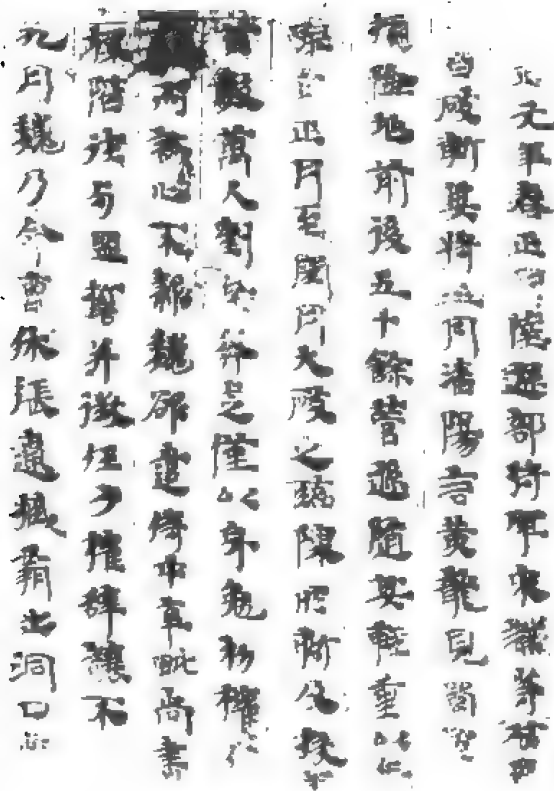 武元年春正月陸遜部將軍宋謙等攻蜀
皆破斬其將三月鄱陽言黃龍見蜀軍
據險地前後五十餘營遜隨其輕重以兵
應拒正月至閏月大破之臨陳所斬及投兵
首數萬人劉備奔走僅以身免初權外
而誠心不款魏欲遣侍中辛毗尚書
桓階往與盟誓并徵任子權辭讓不
九月魏乃命曹休張遼臧霸出洞口